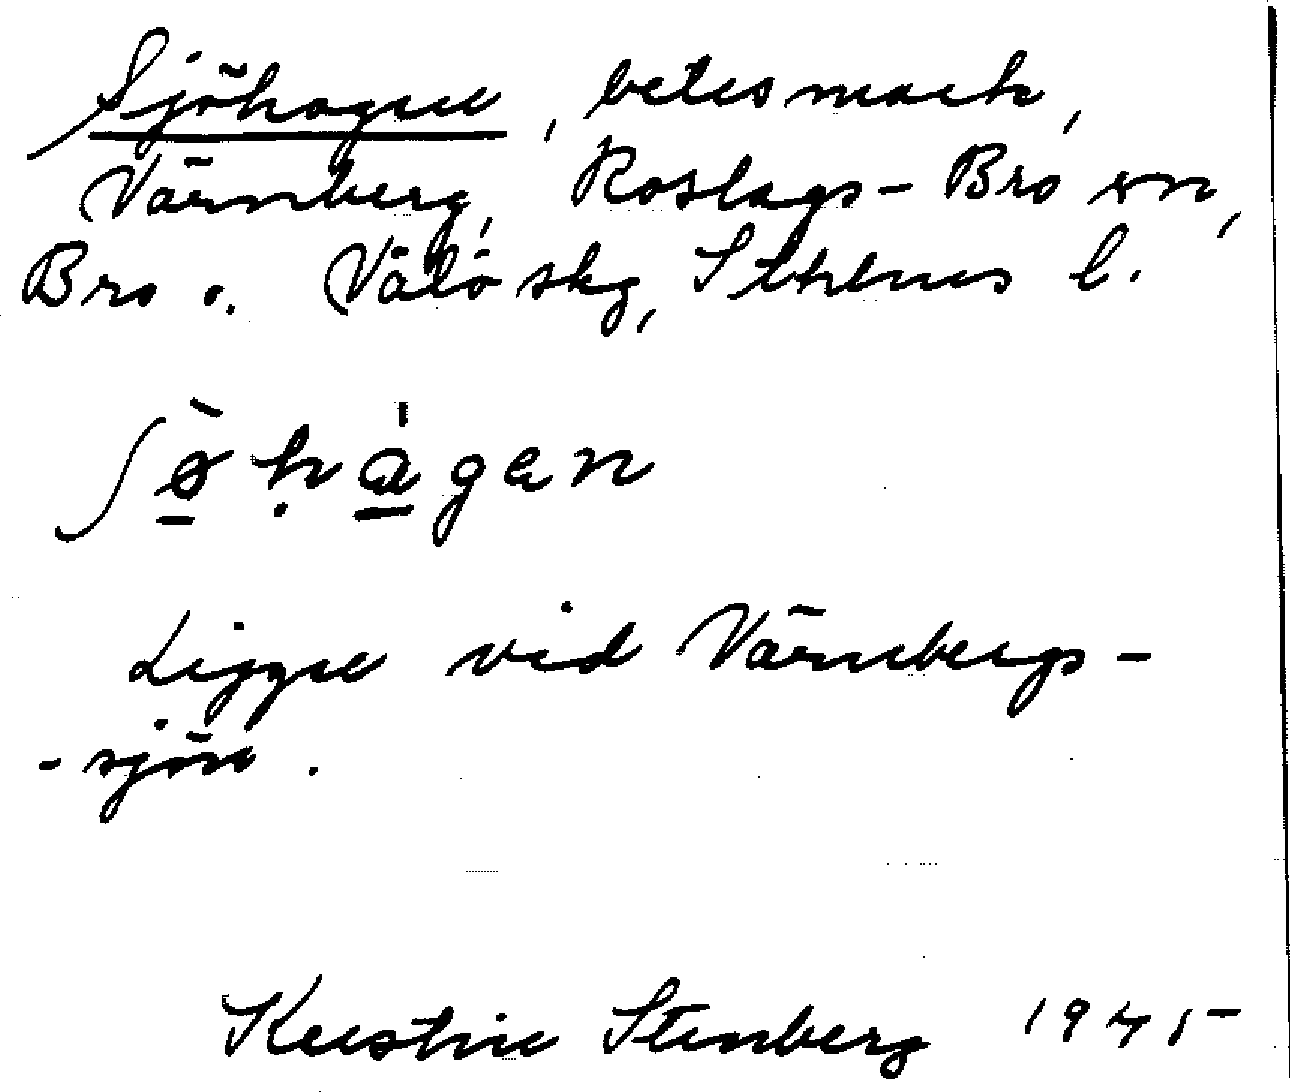 Sjöhagen, betesmark,
Värnberg, Roslags-Bro sn,
Bro o. Vätö skg, Sthlms l.
ʃø̠̀ḥa̠̍gan
Ligger vid Värnbergs-
-sjön.
Kerstin Stenberg 1945